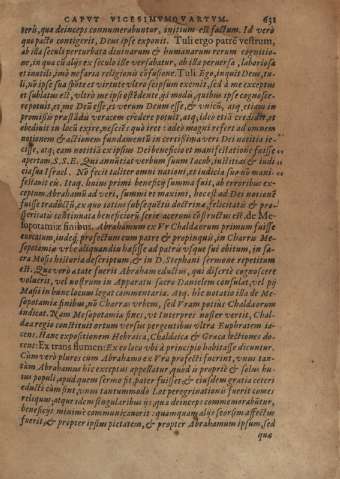 CAPVT VICESIMVMQVARTVM. 631
veris, quæ deinceps connumerabuntur, initium est factum. Id verò
quo pacto contigerit, Deus ipse exponit. Tuli ergo patrē vestrum,
ab illa seculi perturbata divinarum & humanarum rerum cognitio-
ne, in qua cū alijs ex seculo ille versabatur, ab illa perversa, laboriosa
et inutili, imò nefaria religionis cōfusione. Tuli Ego, inquit Deus, tu-
li, nō ipse sua sponte et virtute vlla se ipsum exemit, sed à me exceptus
et sublatus est, vltrò me ipsi ostēdente qui modis, quibus ipse cognosce-
re potuit, et me Deū esse, et verum Deum esse, & vnicū, atq, etiam in
promissis præstandis veracem credere potuit, atq, ideo etiā credidit, et
obedivit in locū exire, nescīs quò iret valeō magni refert ad omnem
notionem & actionem fundamentū in certissima veri Dei notitia ie-
cisse, atq, eam notitiā ex ipsius Dei beneficio et manifestatione fuisse
apertam. S.S.E. Qui annūtiat verbum suum Iacob, iustitias & iudi
cia sua Israel. Nō fecit taliter omni nationi, et iudicia sua nō mani-
festauit eis. Itaq, huius primi beneficij summa fuit, ab erroribus ex-
ceptum Abrahamū ad veri, summi et maximi, hoc est ad Dei notionē
fuisse traductū, ex quo totius subsequētis doctrinæ, felicitatis & pro-
speritatis continuata beneficiorū serie acervum cōstructus est. de Me-
sopotamiæ finibus. Abrahamum ex Vr Chaldæorum primum fuisse
euocatum, indeq, profectum cum patre & propinquis, in Charris Me-
sopotamiæ vrbe aliquandiu habitasse ad patris vsque sui obitum, in sa-
cra Mosis historia descriptum, & in D. Stephani sermone repetitum
est. Quo verò ætate fuerit Abraham eductus, qui disertè cognoscere
voluerit, vel nostrum in Apparatu sacro Danielem consulat, vel pij
Masij in hunc locum legat commentaria. Atq, hîc notatu illa de Me-
sopotamiæ finibus, nō Charras vrbem, sed Vram potius Chaldæorum
indicat. Nam Mesopotamiæ fines, vt Interpres noster vertit, Chal-
dæa regio constituit ortum versus pergentibus vltra Euphratem ia-
cens. Hanc expositionem Hebraica, Chaldaica & Græca lectiones do-
cent: Ex trans flumen: Ex eo loco vbi à principio habitasse dicuntur.
Cum verò plures cum Abrahamo ex Vra profecti fuerint, vnus tan-
tùm Abrahamus hic exceptus appellatur, quòd is propriè & solus hu-
ius populi, apud quem sermo fit, pater fuisset & eiusdem gratia ceteri
educti cùm sint, vnus tantummodo Lot peregrinationis fuerit comes
reliquus, atque idem singularibus ijs, quæ deinceps commemorabūtur,
beneficijs minimè communicauit: quamquam alijs seorsim affectus
fuerit, & propter ipsius pietatem, & propter Abrahamum ipsum, sed
quæ